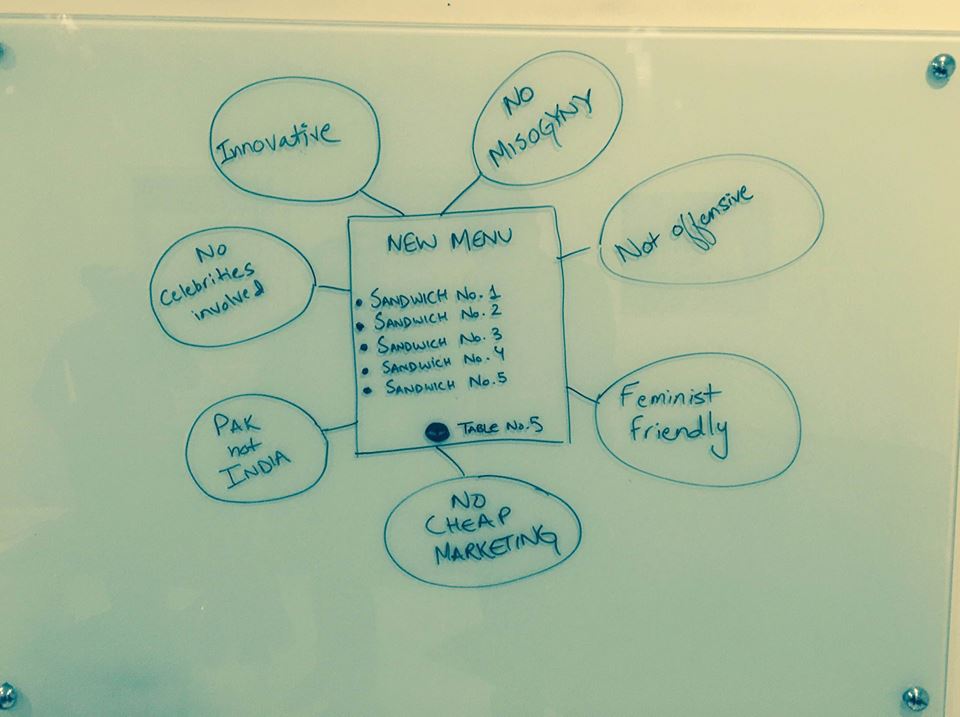 Innovative
NO
MISOGYNY
Not offensive
NO
Celebrities
involved
NEW MENU
• SANDWICH No. 1
• SANDWICH No. 2
• SANDWICH No. 3
• SANDWICH No. 4
• SANDWICH No. 5
TABLE No. 5
Feminist
friendly
PAK
not
INDIA
NO
CHEAP
MARKETING